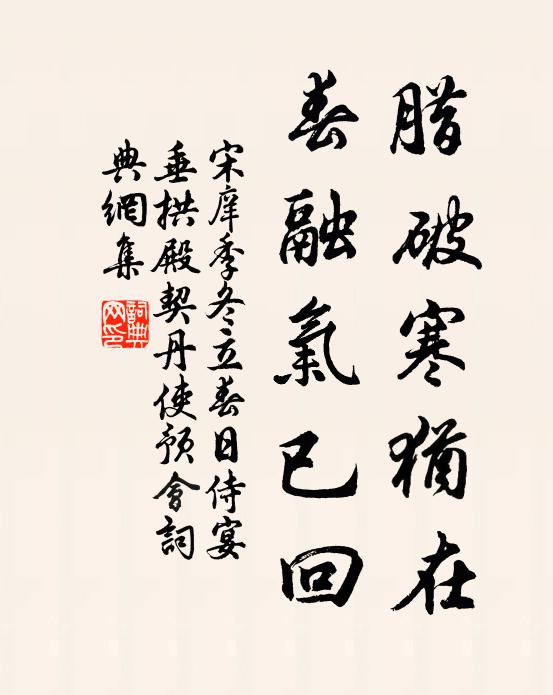 腊破寒猶在
春融氣已回
宋庠季冬立春日侍宴
垂拱殿契丹使預會詞
典網集
詞典網印